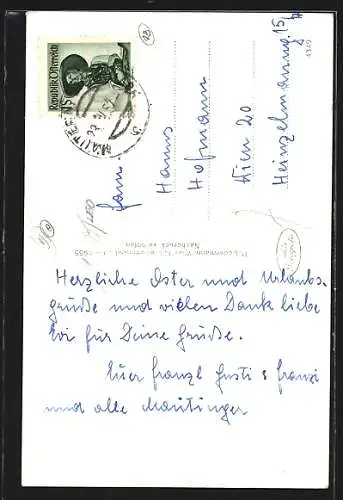 Republik Österreich
MAUTERN
Fam
Hanns
Hofmann
Wien 20
Heinzelmanng. 15/
4349
Nachdruck verboten
Herzliche Oster und Urlaubs-
grüße und vielen Dank liebe
Evi für Deine Grüße.
Euer Franzl Gusti & Franzi
und alle Mautinger